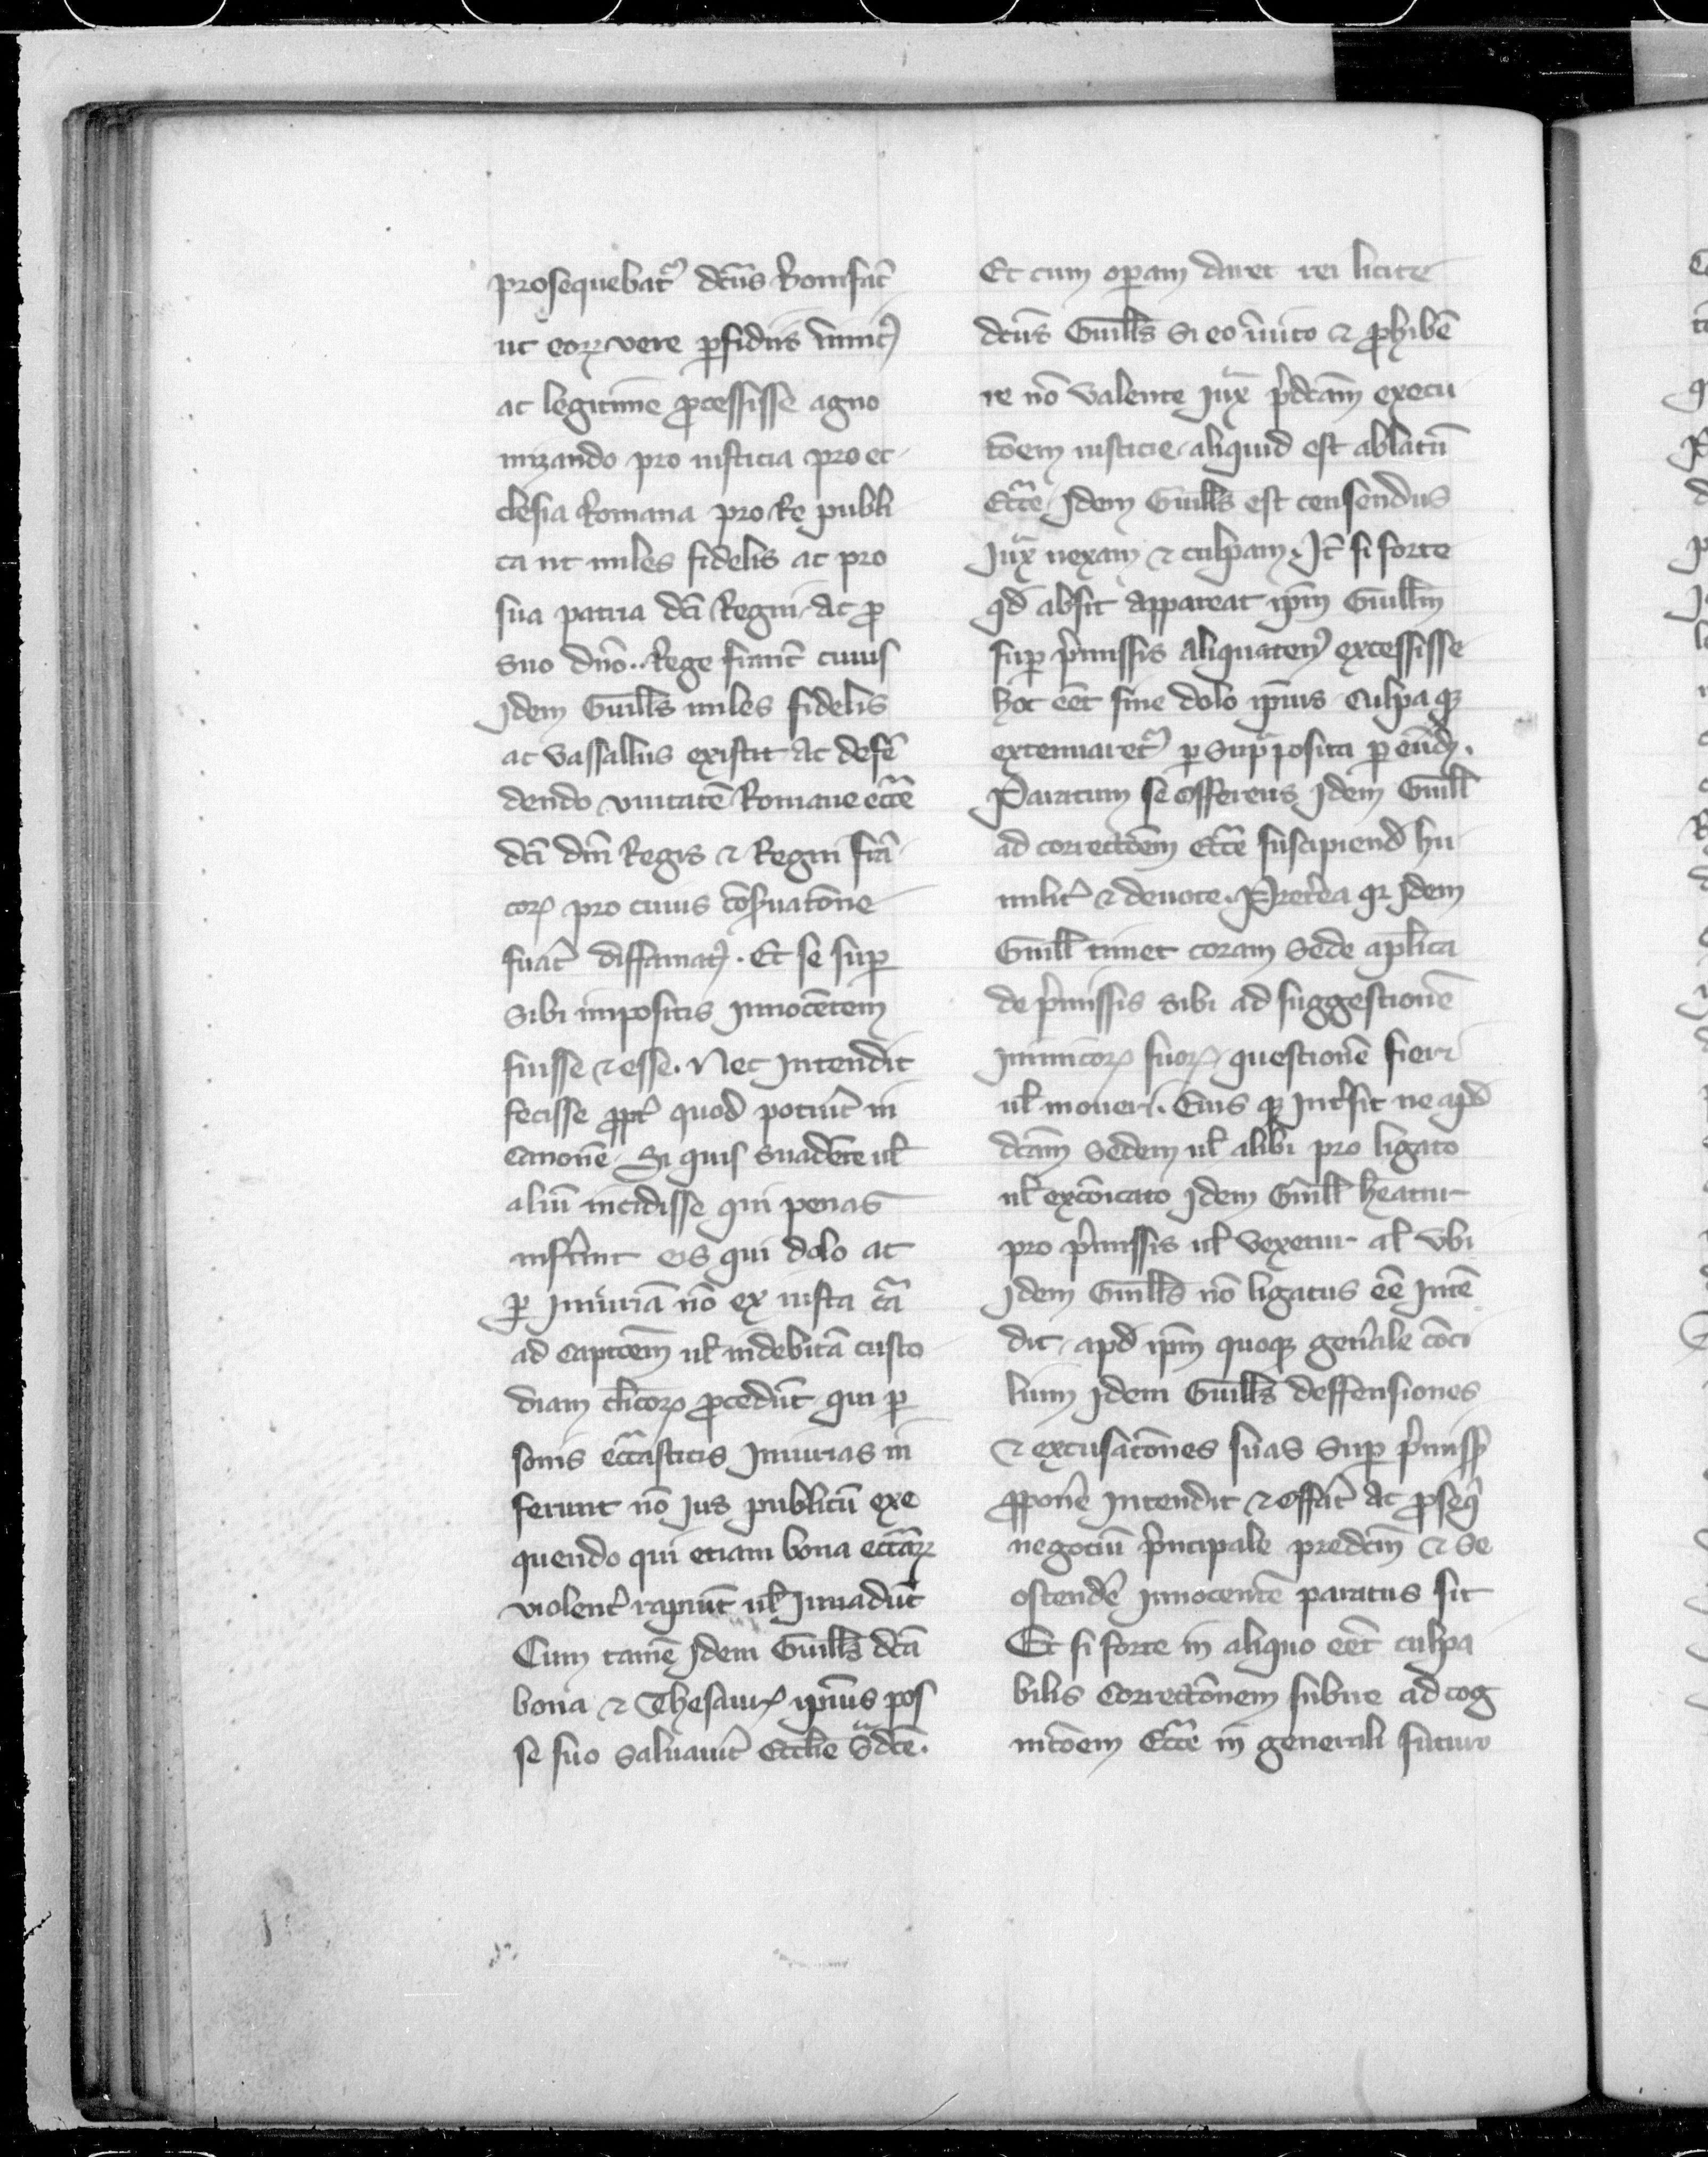 prosequebat᷑ dcūs Bonifac̄
ut eoꝝ vere ꝑfidus inimicꝰ
ac legitime ꝓcessisse agno
nizando pro iusticia pro ec
clesia Romana pro Re publi
ca ut miles fidelis ac pro
sua patria dc̄i Regni ac ꝓ
suo dn̄o .. Rege franc̄ cuius
Idem Guill̄s miles fidelis
ac vassallus existit ac defē
dendo unitatē Romane ecc̄e
dc̄i dn̄i Regis ⁊ Regni frā
coꝝ pro cuius cōẜuatōne
fuat᷑ diffamatꝰ. Et se suꝑ
sibi impositis Innocētem
fuisse ⁊ esse. Nec Intendit
fecisse ꝓpt᷑ quod potuit᷑ in
Canonē Si quis suadēte ul̄
aliū incidisse qui penas
infert᷑ eis qui dolo ac
ꝑ Iniuriā nō ex iusta cā
ad captōem ul̄ indebitā custo
diam cl̄icoꝝ ꝓcedūt qui ꝑ
sonis ecc̄asticis Iniurias in
ferunt nō Ius publicū exe
quendo qui etiam bona ecc̄aꝝ
violent᷑ rapiūt ul̄ Inuadūt
Cum tamē Idem Guill̄s dc̄a
bona ⁊ Thesauꝝ ip̄ius pos
se suo saluauit᷑ Eccl̄ie sᵃdc̄e.
Et cum operam daret rei licite
dcūs Guill̄s Si eo inuito ⁊ ꝓhibē
re nō valente Iux̄ p̄dc̄am execu
tōem iusticie aliquid est ablatū
Ecc̄e Idem Guill̄s est censendus
Iux̄ nexam ⁊ culpam. It̄ si forte
qd̄ absit appareat ip̄m Guill̄m
suꝑ p̄missis aliquatenꝰ excessisse
hoc eēt sine dolo ip̄ius culpa qꝫ
extenuaret᷑ ꝑ Supᵃposita ꝑ eūdꝫ.
Paratum se offerens Idem Guill̄
ad correctōem Ecc̄e suscipiend̄ hu
milit᷑ ⁊ deuote. Pret᷑ea qr Idem
Guill̄ timet coram Sede apl̄ica
de p̄missis sibi ad suggestionē
Inimicoꝝ suoꝝ questionē fieri
ul̄ moueri. Eius qꝫ Int᷑sit ne apd̄
dc̄am Sedem ul̄ alibi pro ligato
ul̄ excōicato Idem Guill̄ heatur
pro p̄missis ul̄ vexetur al̄ ubi
Idem Guill̄s nō ligatus eē Intē
dit apd̄ ip̄m quoqꝫ gen᷑ale cōci
lium Idem Guill̄s deffensiones
⁊ excusatōnes suas Suꝑ p̄miss̄
ꝓponē Intendit ⁊ offert᷑ ac ꝓseqⁱ
negociū p̄ncipale predcm̄ ⁊ Se
ostendē Innocentē paratus sit
Et si forte in aliquo eēt culpa
bilis Correctōnem subire ad cog
nitōem Ecc̄e in generali futuro